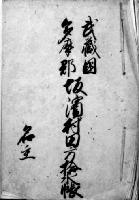 武蔵國
多摩郡坂濱村田方㧡帳
名主